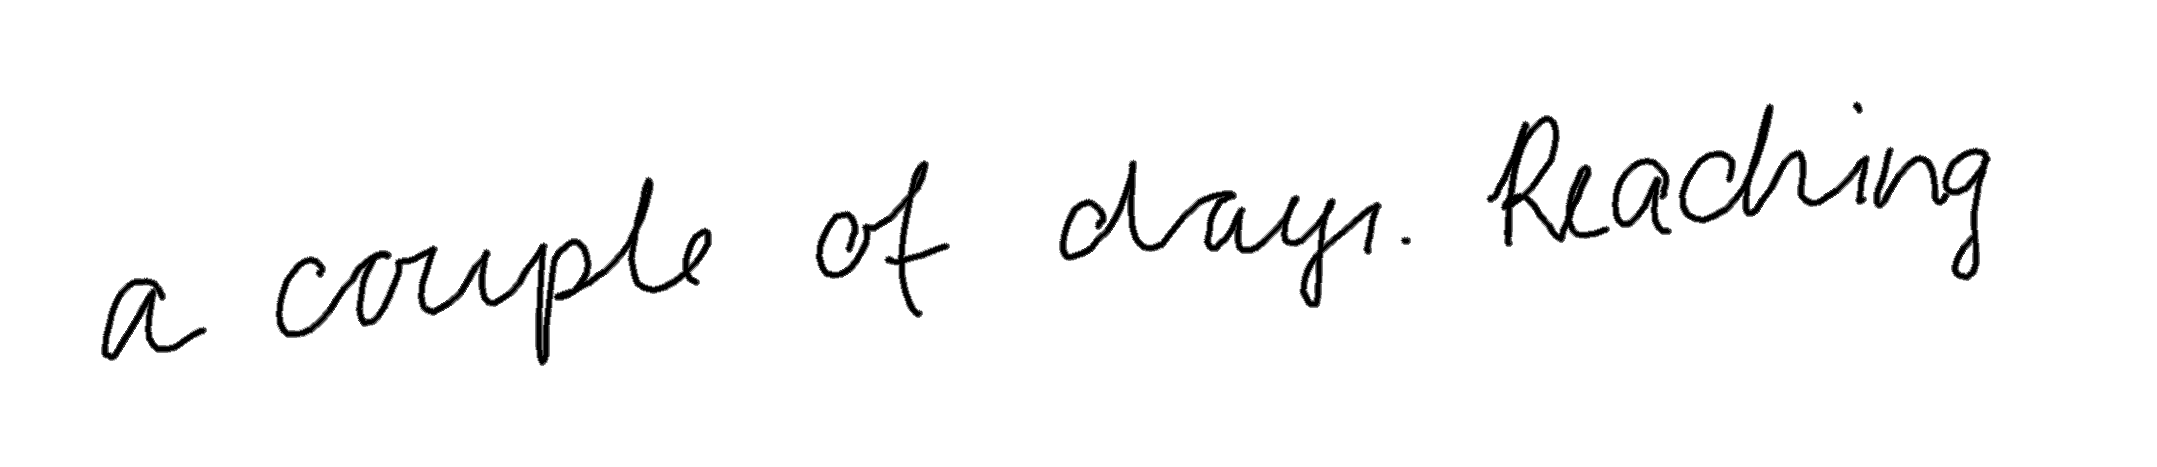 a couple of days. Reaching